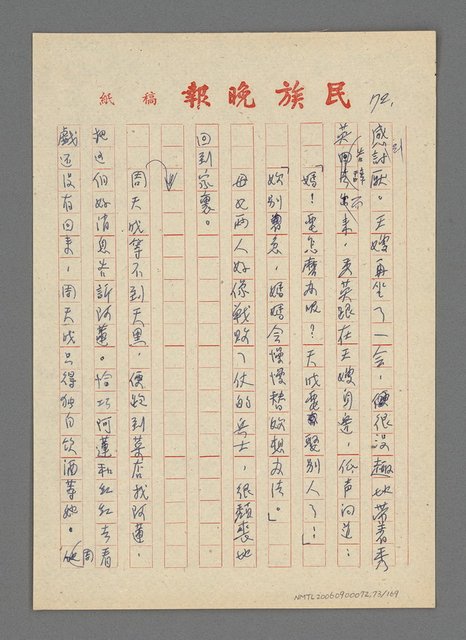 民族晚報 稿紙
72.
感到討厭。王嫂再坐了一會,便很沒趣地帶著秀
英告辭而出來,秀英跟在王嫂身邊,低声问道:
「媽!要怎麼办呢?天成要娶別人了!」
「妳別着急,媽媽会慢慢替妳想办法。」
母女两人好像戰敗了仗的兵士,很頹喪地
回到家裏。
周天成等不到天黑,便跑到菜店找阿蓮,
把这個好消息告訴阿蓮。恰巧阿蓮和紅紅去看
戲还沒有回来,周天成只得独自飲酒等她。周
NMTL20060900072,73/169